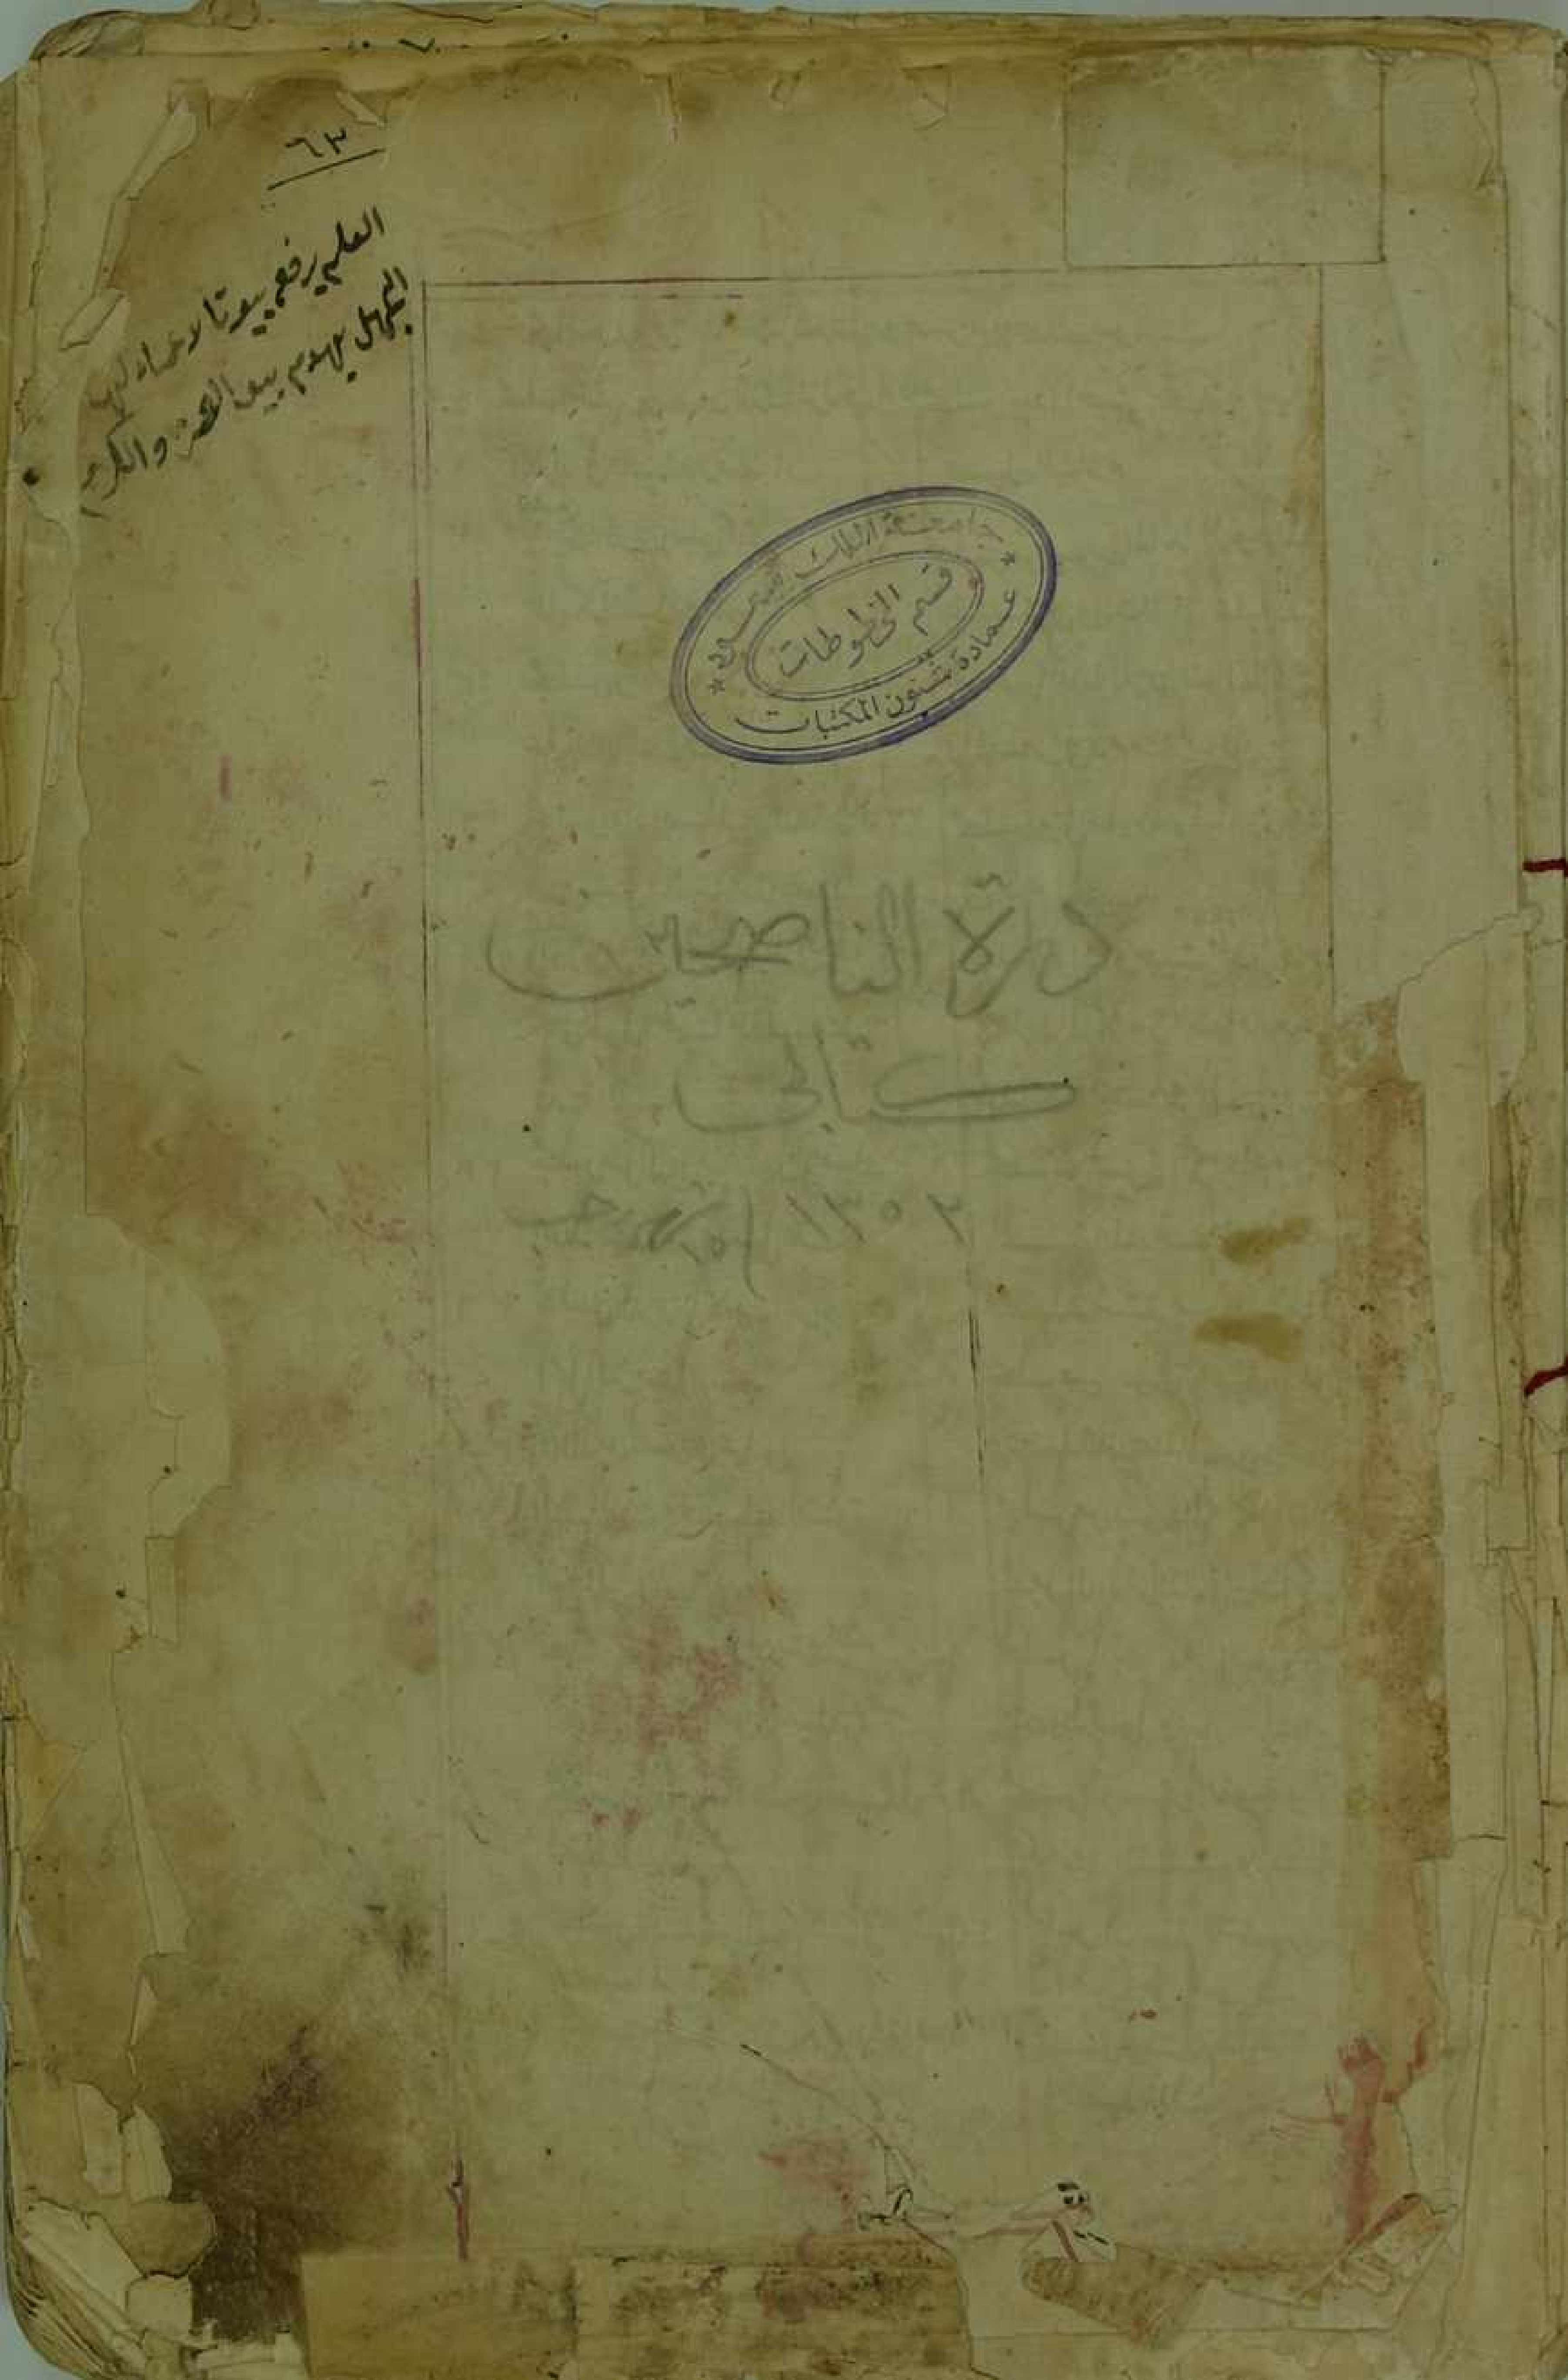 ٦٣
العلم يرفع بيوتا لا عماد لها
الجهل يهدم بيت العز والكرم
جامعة الملك سعود
قسم المخطوطات
عمادة شئون المكتبات
درة الناصحين
كتابى
١٣٠٢